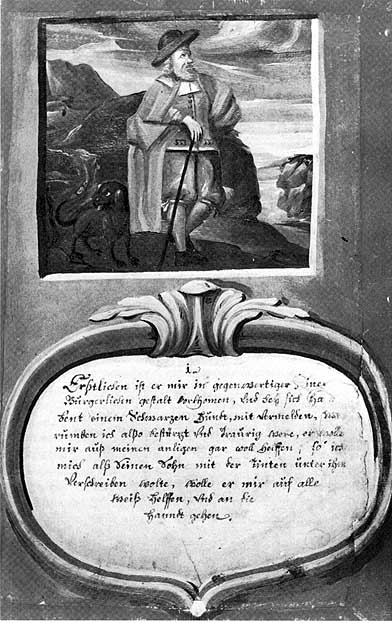 1.
Erstlichen ist er mir in gegenwertiger eines
Bürgerlichen gestalt vorkhomen, Und bey sich ha
bent einem Schwarzen Hundt, mit Vermelden, wa
rumben ich alßo bestürzt Und traurig were, er wolle
mir auß meinen anligen gar woll helffen, so ich
mich alß Seinen Sohn mit der tinten unter ihm
Verschreiben wolte, wolle er mir auf alle
weiß helffen, Und an die
Handt gehen.